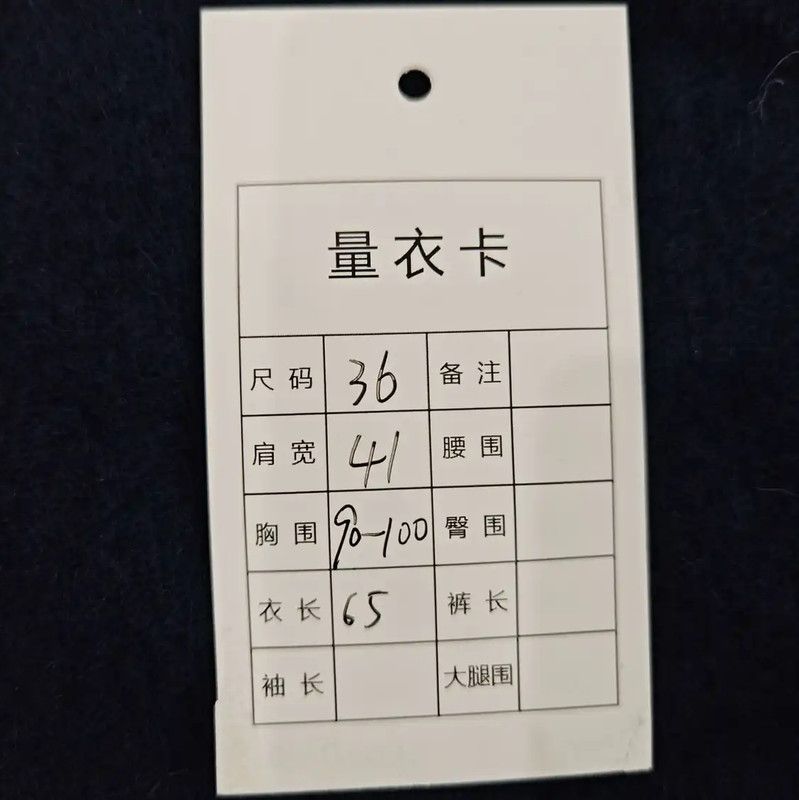 量衣卡
尺码 36 备注
肩宽 41 腰围
胸围 90-100 臀围
衣长 65 裤长
袖长 大腿围